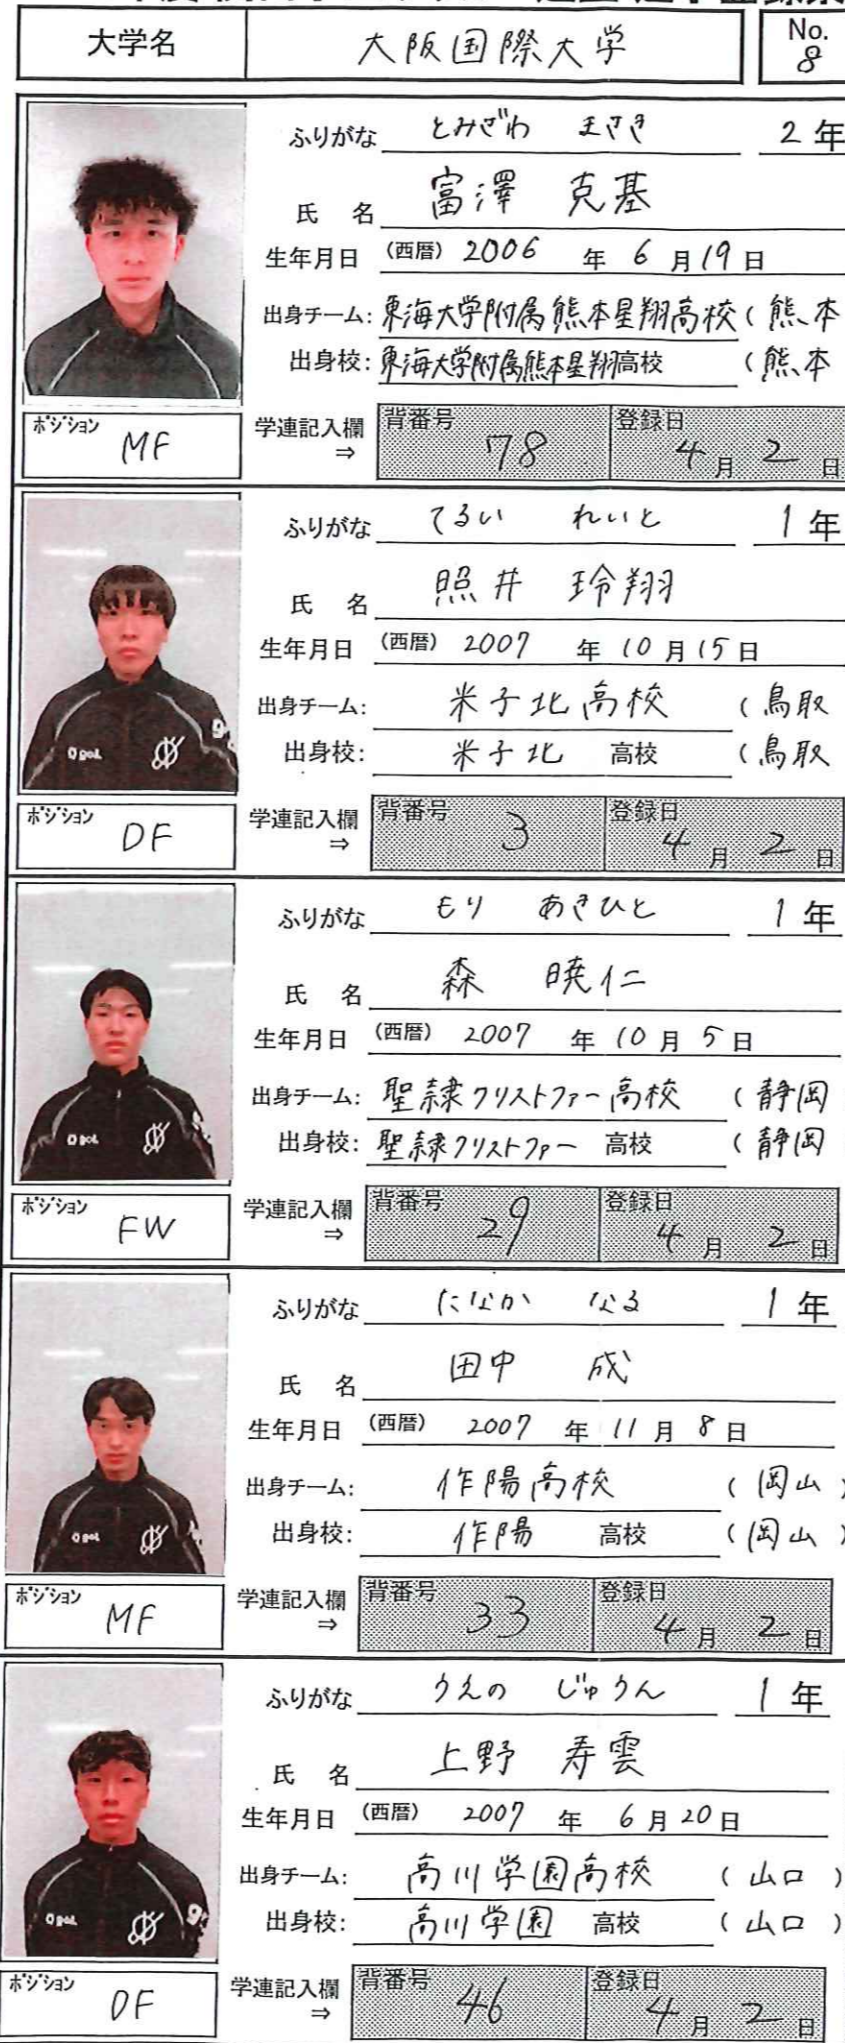 大学名 大阪国際大学 No. 8
ふりがな とみざわ まさき 2年
氏 名 富澤 克基
生年月日 (西暦) 2006 年 6 月 19 日
出身チーム: 東海大学附属熊本星翔高校 (熊本
出身校: 東海大学附属熊本星翔高校 (熊本
ポジション MF 学連記入欄 ⇒ 背番号 78 登録日 4 月 2 日
ふりがな てるい れいと 1年
氏 名 照井 玲翔
生年月日 (西暦) 2007 年 10 月 15 日
出身チーム: 米子北高校 (鳥取
出身校: 米子北 高校 (鳥取
ポジション DF 学連記入欄 ⇒ 背番号 3 登録日 4 月 2 日
ふりがな もり あきひと 1年
氏 名 森 暁仁
生年月日 (西暦) 2007 年 10 月 5 日
出身チーム: 聖隷クリストファー高校 (静岡
出身校: 聖隷クリストファー 高校 (静岡
ポジション FW 学連記入欄 ⇒ 背番号 29 登録日 4 月 2 日
ふりがな たなか なる 1年
氏 名 田中 成
生年月日 (西暦) 2007 年 11 月 8 日
出身チーム: 作陽高校 (岡山)
出身校: 作陽 高校 (岡山)
ポジション MF 学連記入欄 ⇒ 背番号 33 登録日 4 月 2 日
ふりがな うえの じゅうん 1年
氏 名 上野 寿雲
生年月日 (西暦) 2007 年 6 月 20 日
出身チーム: 高川学園高校 (山口)
出身校: 高川学園 高校 (山口)
ポジション DF 学連記入欄 ⇒ 背番号 46 登録日 4 月 2 日